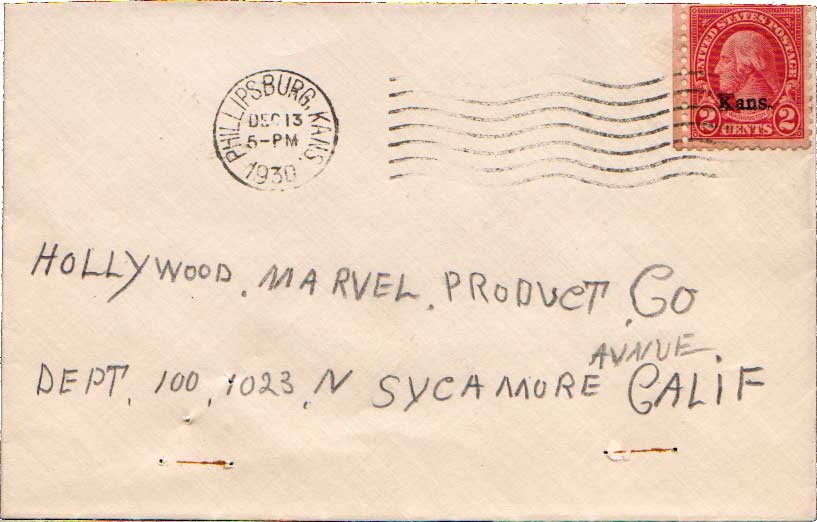 UNITED STATES POSTAGE
Kans.
2 CENTS 2
PHILLIPSBURG, KANS.
DEC 13
5-PM
1930
HOLLYWOOD. MARVEL. PRODUCT. CO
AVNUE
DEPT. 100, 1023. N SYCAMORE CALIF